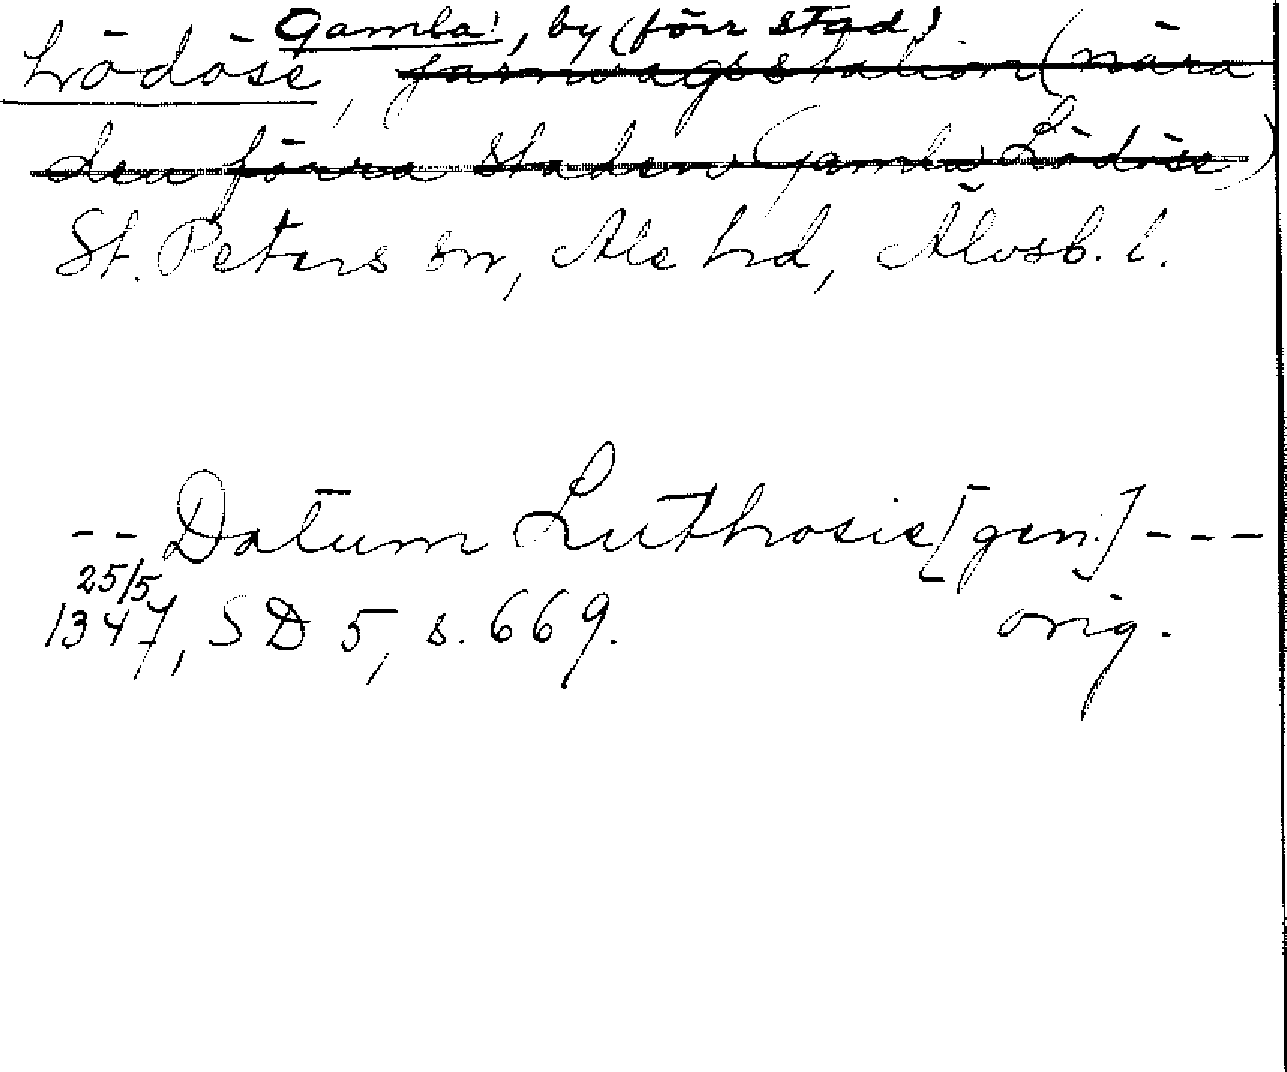 Gamla, by (förr stad)
Lödöse, järnvägsstation (nära
den förra staden Gamla Lödöse)
St. Peters sn, Ale hd, Älvsb. l.
-- Datum Luthosie [gen.] ---
25/5
1347, SD 5, s. 669. orig.